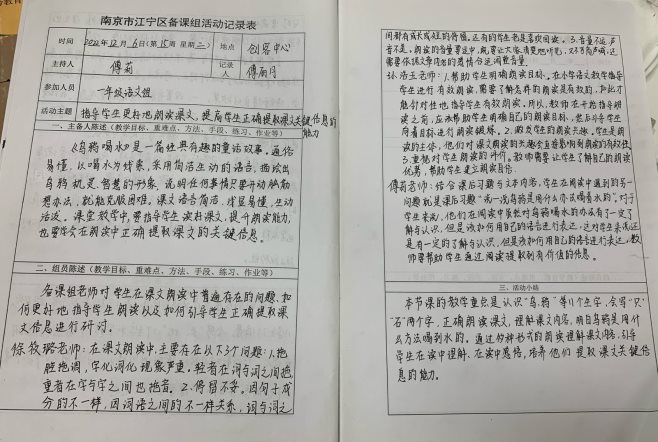 南京市江宁区备课组活动记录表
时间 2022年12月6日(第15周 星期二) 地点 创客中心
主持人 傅莉 记录人 傅丽月
参加人员 一年级语文组
活动主题 指导学生更好地朗读课文,提高学生正确提取课文关键信息的能力
一、主备人陈述(教学目标、重难点、方法、手段、练习、作业等)
《乌鸦喝水》是一篇经典有趣的童话故事。通俗
易懂,以喝水为线索,采用简洁生动的语言,描绘出
乌鸦机灵、智慧的形象,说明任何事情只要开动脑筋
想办法,就能克服困难。课文语言简洁,浅显易懂,生动
活泼。课堂教学中,要指导学生读好课文,提升朗读能力,
也要学会在朗读中正确提取课文的关键信息。
二、组员陈述(教学目标、重难点、方法、手段、练习、作业等)
备课组老师对学生在课文朗读中普遍存在的问题、如
何更好地指导学生朗读以及如何引导学生正确提取课
文信息进行研讨。
徐牧璐老师:在课文朗读中,主要存在以下3个问题:1.拖
腔拖调,字化词化现象严重。轻者在词与词之间拖
重者在字与字之间也拖音。2.停留不妥。因句子成
分的不一样,因词语之间的不一样关系,词与词之
间都有或长或短的停留。还有的学生老是喜欢回读。3.音量不远,声
音不足。朗读的音量要适中,既要让大家清楚地听见,又不可高声喊,还
需要依据文章内容的感情色彩调整音量。
王老师:1.帮助学生明确朗读目标。在小学语文教学指导
学生进行有效朗读,需要了解怎样的朗读是有效的,如此才
能针对性地指导学生有效朗读。所以,教师在开始指导朗
读之前,应该帮助学生明确自己的朗读目标,然后引导学生
向着目标进行朗读锻炼。2.激发学生的朗读兴趣。学生是朗
读的主体,他们对课文朗读的兴趣会直接影响到朗读的有效性。
3.重视对学生朗读的评价。教师需要让学生了解自己的朗读
优劣,帮助学生建立朗读自信。
傅莉老师:结合课后习题与文本内容,学生在阅读中遇到的另一
问题就是课后习题“说一说乌鸦是用什么办法喝着水的”。对于
学生来说,他们在阅读中虽然对乌鸦喝水的办法有了一定了
解与认识,但是该如何用自己的语言进行表达,这对学生来说还
是有一定的了解与认识,但是该如何用自己的语言进行表达,教
师要帮助学生通过阅读提取到有价值的信息。
三、活动小结
本节课的教学重点是认识“乌、鸦”等11个生字,会写“只”
“石”两个字,正确朗读课文,理解课文内容,明白乌鸦是用什
么方法喝到水的。通过多种形式的朗读理解课文内容,引导
学生在读中理解、在读中感悟,培养他们提取课文关键信
息的能力。